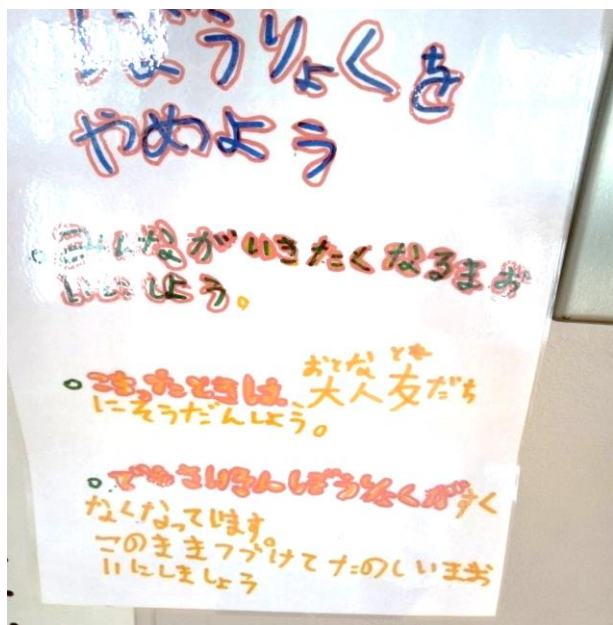 ぼうりょくを
やめよう
みんながいきたくなるまお
いにしよう。
こまったときは、大人友だち
おとな とも
にそうだんしよう。
でもさいきんぼうりょくがすく
なくなっています。
このままつづけてたのしいまお
いにしましょう